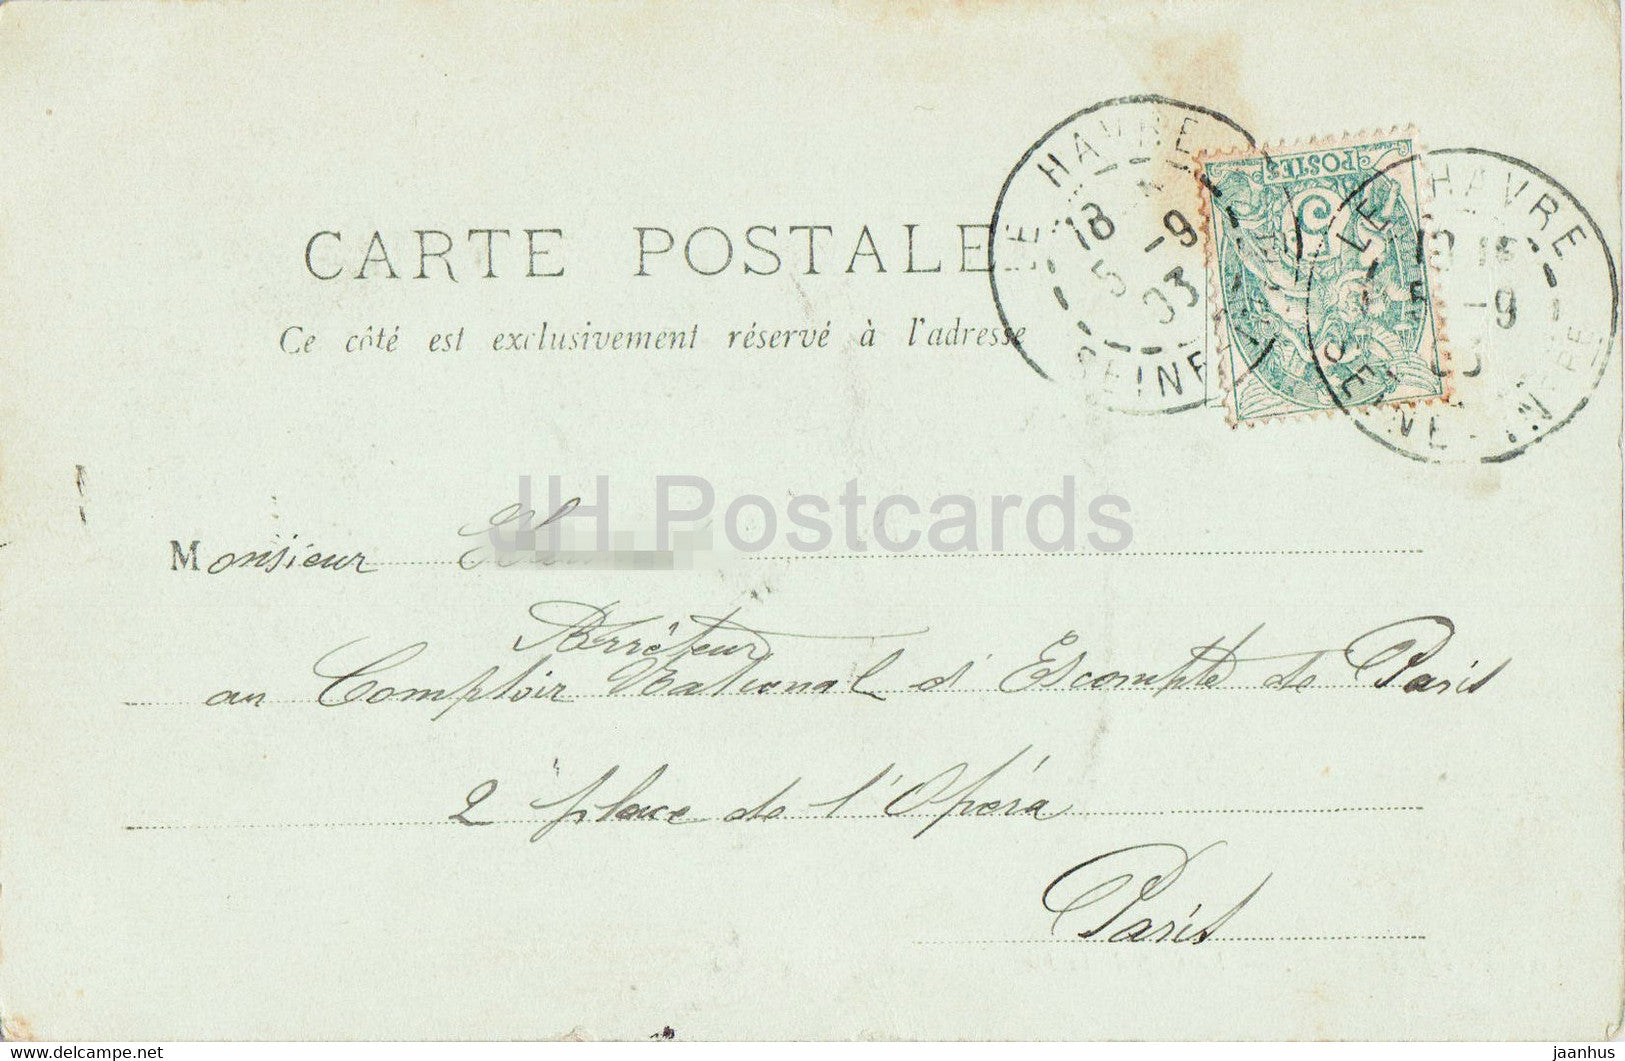 CARTE POSTALE
Ce côté est exclusivement réservé à l'adresse
LE HAVRE
18 -9
5 03
SEINE INFRE
POSTES
5
LE HAVRE
-9
SEINE INFRE
JH Postcards
Monsieur
Arrêteur
au Comptoir National d'Escompte de Paris
2 place de l'Opéra
Paris
www.hippostcard.com
jaanhus